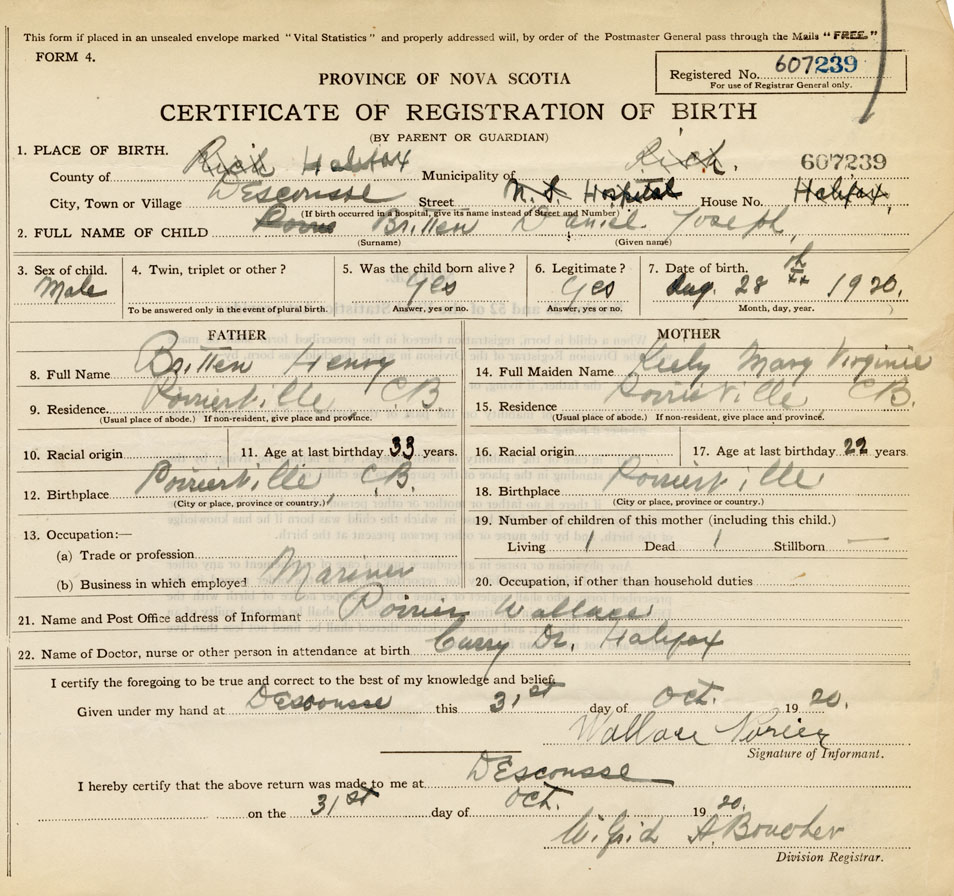 This form if placed in an unsealed envelope marked "Vital Statistics" and properly addressed will, by order of the Postmaster General pass through the Mails "FREE."
FORM 4.
PROVINCE OF NOVA SCOTIA
Registered No. 607239
For use of Registrar General only.
CERTIFICATE OF REGISTRATION OF BIRTH
(BY PARENT OR GUARDIAN)
1. PLACE OF BIRTH.
607239
County of Rich Halifax Municipality of Rich.
City, Town or Village Descousse Street N.S. Hospital House No. Halifax
(If birth occurred in a hospital, give its name instead of Street and Number)
2. FULL NAME OF CHILD Britten Daniel Joseph
(Surname) (Given name)
3. Sex of child. Male
4. Twin, triplet or other?
To be answered only in the event of plural birth.
5. Was the child born alive? Yes
Answer, yes or no.
6. Legitimate? Yes
Answer, yes or no.
7. Date of birth. Aug. 28th 1920.
Month, day, year.
FATHER
8. Full Name Britten Henry
9. Residence Poirierville, C B
(Usual place of abode.) If non-resident, give place and province.
10. Racial origin
11. Age at last birthday 33 years.
12. Birthplace Poirierville, C.B.
(City or place, province or country.)
13. Occupation:—
(a) Trade or profession
(b) Business in which employed Mariner
MOTHER
14. Full Maiden Name Kiely Mary Virginie
15. Residence Poirierville C B.
(Usual place of abode.) If non-resident, give place and province.
16. Racial origin
17. Age at last birthday 22 years.
18. Birthplace Poirierville
(City or place, province or country.)
19. Number of children of this mother (including this child.)
Living 1 Dead 1 Stillborn —
20. Occupation, if other than household duties
21. Name and Post Office address of Informant Poirier Wallace
22. Name of Doctor, nurse or other person in attendance at birth Curry Dr. Halifax
I certify the foregoing to be true and correct to the best of my knowledge and belief.
Given under my hand at Descousse this 31st day of Oct. 1920.
Wallace Porier
Signature of Informant.
I hereby certify that the above return was made to me at DEscousse
on the 31st day of Oct. 1920.
Wilfrid A. Boucher
Division Registrar.